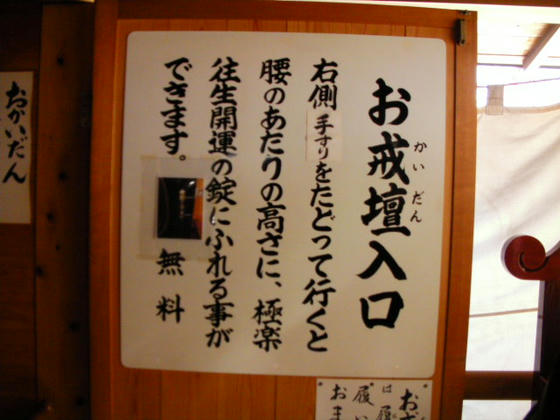 お戒壇入口
かいだん
右側手すりをたどって行くと
腰のあたりの高さに、極楽
往生開運の錠にふれる事が
できます。
無料
おかいだん
は履
履い
おま